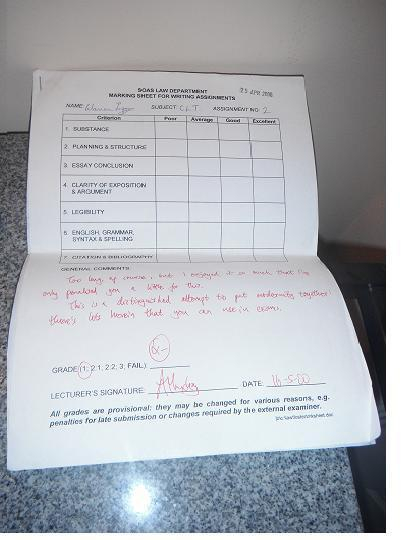 25 APR 2000
SOAS LAW DEPARTMENT
MARKING SHEET FOR WRITING ASSIGNMENTS
NAME: SUBJECT: C.L.T. ASSIGNMENT NO: 2
Criterion Poor Average Good Excellent
1. SUBSTANCE
2. PLANNING & STRUCTURE
3. ESSAY CONCLUSION
4. CLARITY OF EXPOSITION
& ARGUMENT
5. LEGIBILITY
6. ENGLISH, GRAMMAR,
SYNTAX & SPELLING
7. CITATION & BIBLIOGRAPHY
GENERAL COMMENTS:
Too long, of course, but I enjoyed it so much that I've
only penalised you a little for this.
This is a distinguished attempt to put modernity together:
there's lots herein that you can use in exam.
GRADE (1; 2.1; 2.2; 3; FAIL):
LECTURER'S SIGNATURE: DATE: 16-5-00
All grades are provisional: they may be changed for various reasons, e.g.
penalties for late submission or changes required by the external examiner.